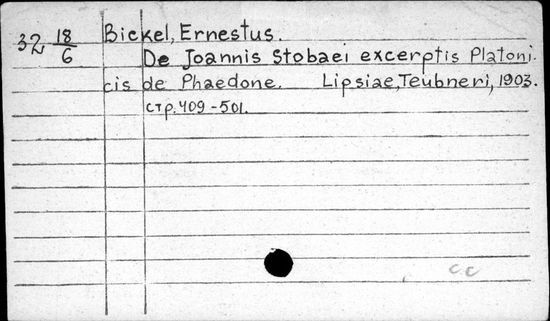 32 18/6 Bickel, Ernestus.
De Joannis Stobaei excerptis Platoni-
cis de Phaedone. Lipsiae, Teubneri, 1903.
стр. 409-501.
СЕ